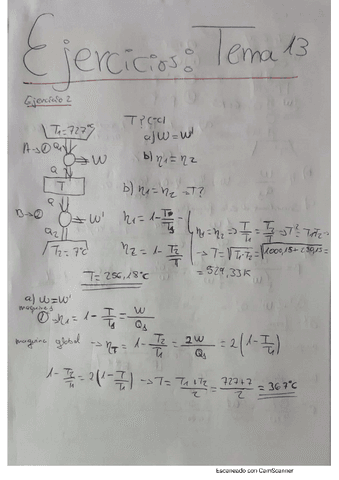 Ejercicios: Tema 13
Ejercicio 2
T1 = 727°C
A → ①
Q1
→ W
a) W = W'
b) η1 = η2
Q
T
b) η1 = η2 → T?
B → ②
→ W'
Q2
T2 = 7°C
η1 = 1 - T/T1
η2 = 1 - T2/T
η1 = η2 ⇒ T/T1 = T2/T ⇒ T² = T1T2 →
→ T = √T1·T2 = √1000,15 · 280,15 =
= 529,33K
T = 256,18°C
a) W = W'
① → η1 = 1 - T/T1 = W/Q1
maquina global → ηT = 1 - T2/T1 = 2W/Q1 = 2(1 - T/T1)
1 - T2/T1 = 2(1 - T/T1) → T = T1 + T2/2 = 727+7/2 = 367°C
Escaneado con CamScanner